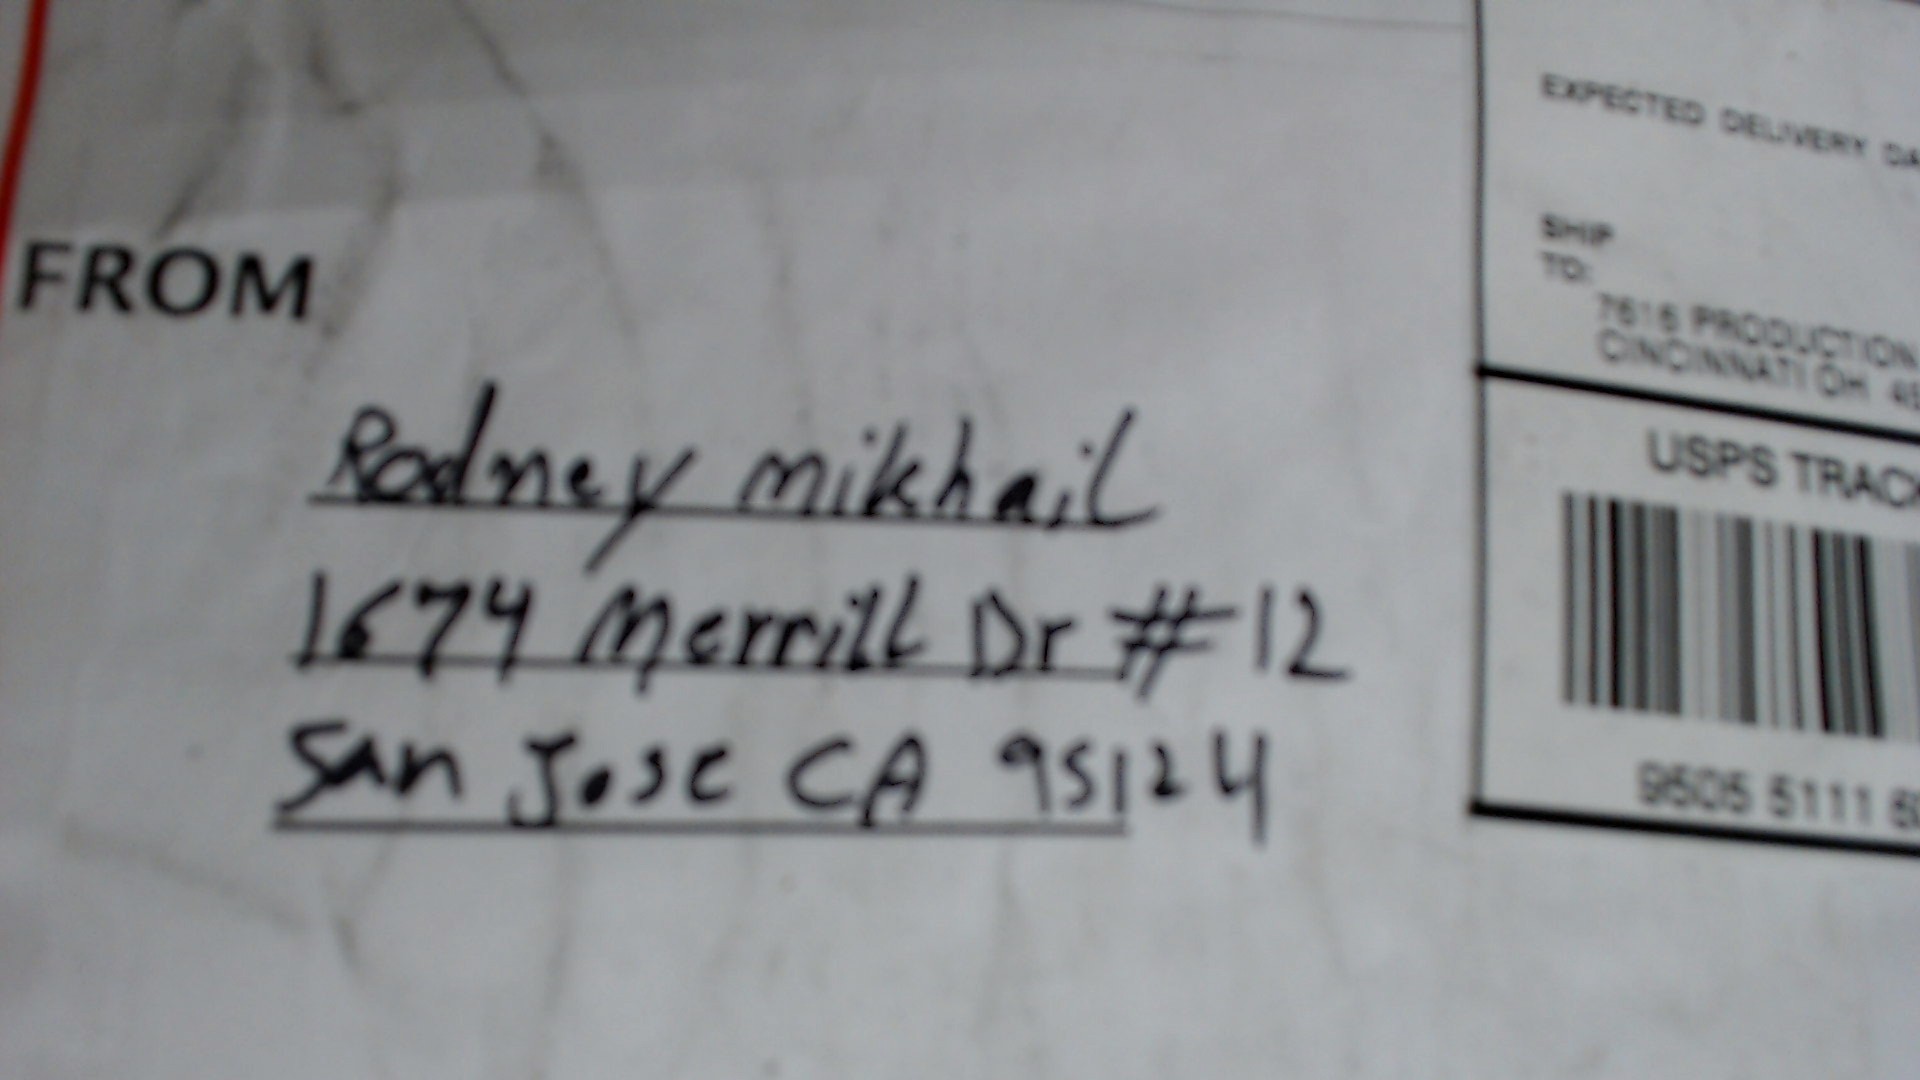 FROM
Rodney mikhail
1674 Merrill Dr #12
San Jose CA 95124
EXPECTED DELIVERY DA
SHIP
TO:
7616 PRODUCTION
CINCINNATI OH 45
USPS TRACK
9505 5111 60